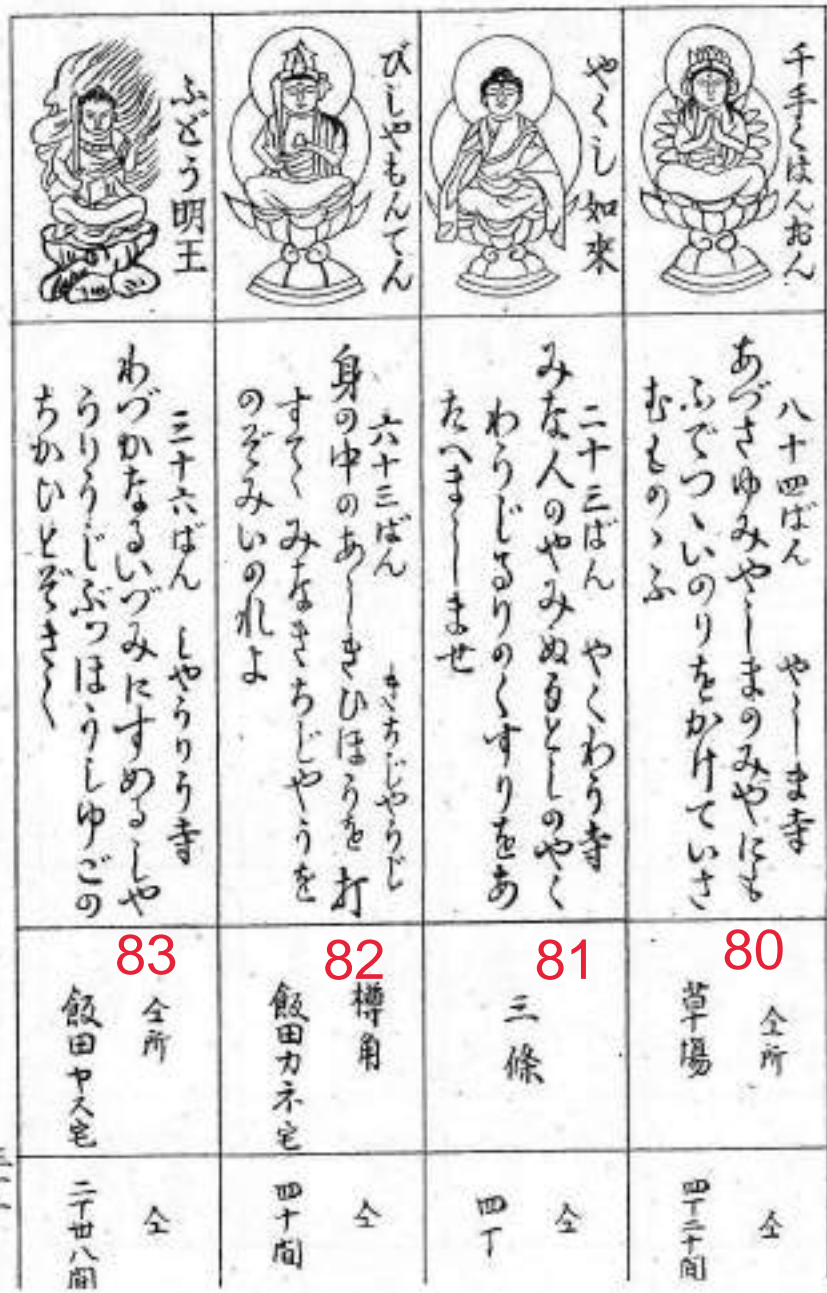 千手くほんおん
八十四ばん　やしま寺
あづさゆみやしまのみやにも
ふでつゝいのりをかけていさ
むものゝふ
80
仝所
草場
仝
四丁二十間
やくし如来
二十三ばん　やくわう寺
みな人のやみぬるとしのやく
わうじるりのくすりをあ
たへましませ
81
三條
仝
四丁
びしやもんてん
六十三ばん　きちじやうじ
身の中のあしきひほうを打
すてゝみなきちじやうを
のぞみいのれよ
82
樽角
飯田カネ宅
仝
四十間
ふどう明王
三十六ばん　しやうりう寺
わづかなるいづみにすめるしや
うりうじぶつほうしゆごの
ちかひとぞきく
83
仝所
飯田ヤス宅
仝
二丁廿八間